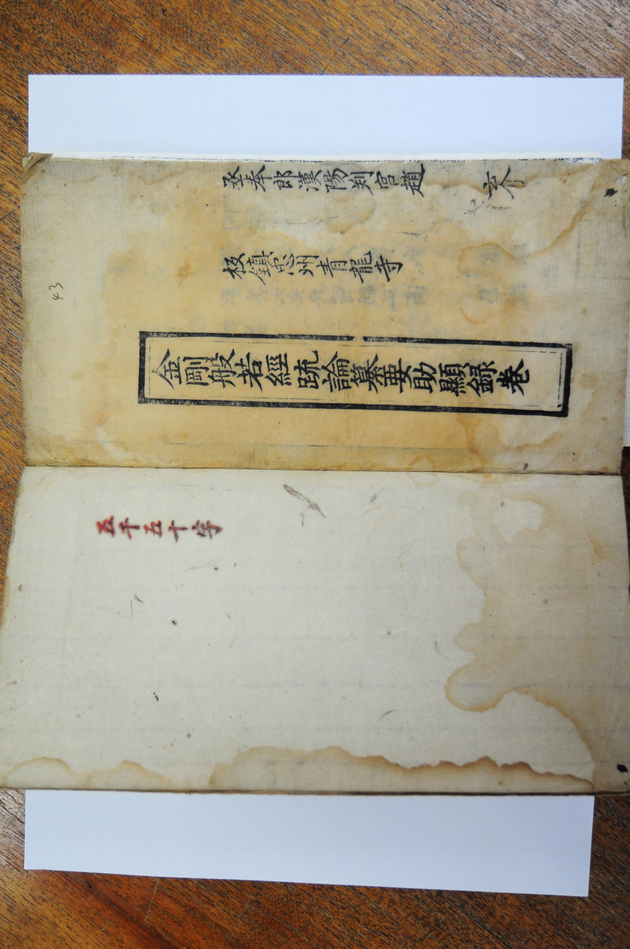 丞奉郎漢陽判官趙
板鎮忠州青龍寺
金剛般若經䟽論纂要助顯錄卷
43
五千五十字